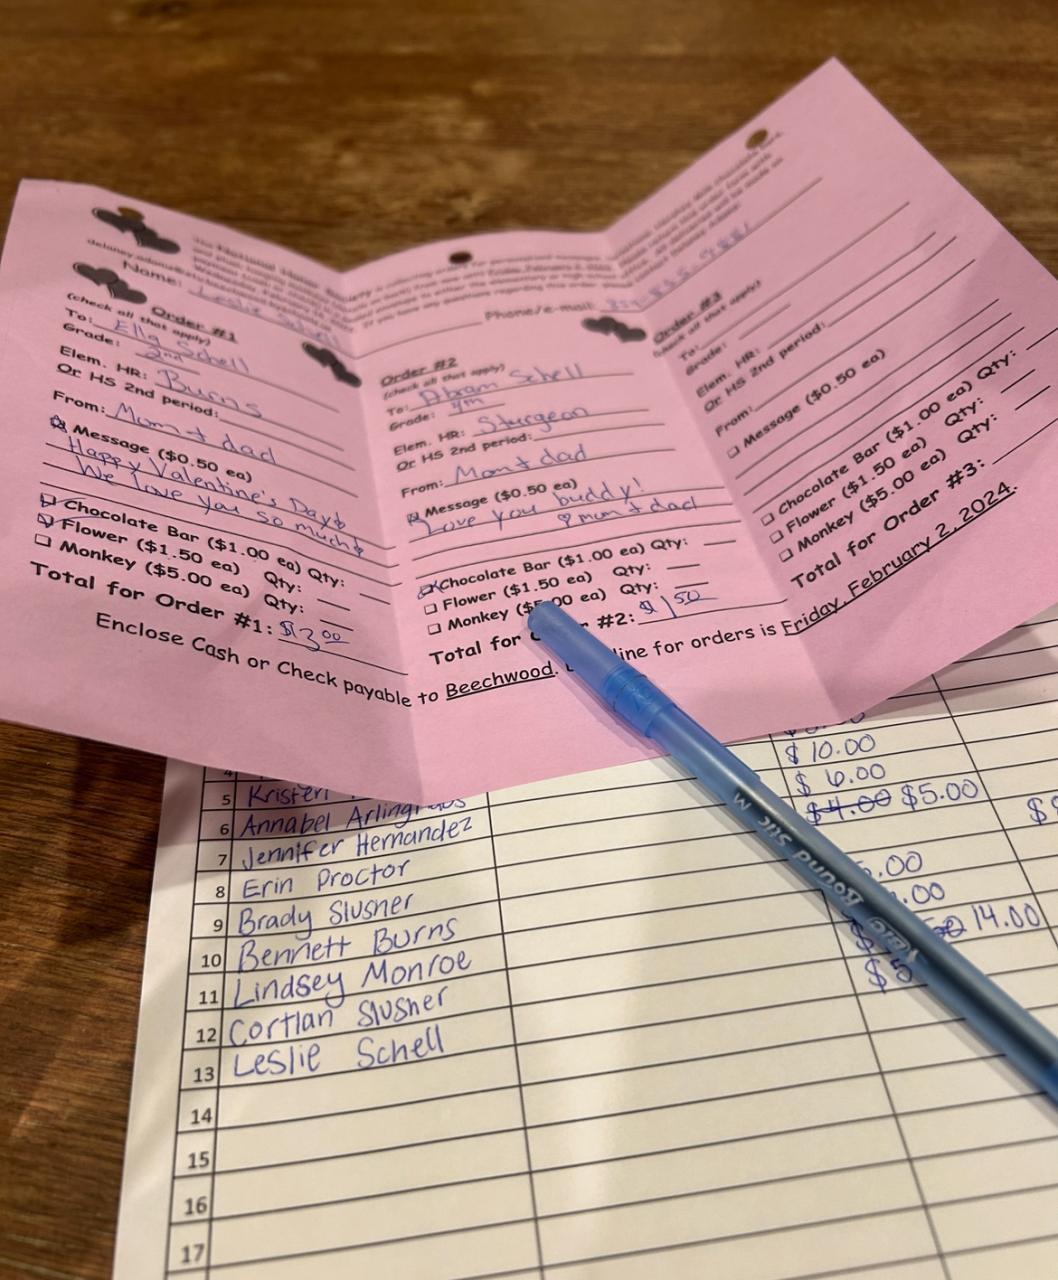 Name: Leslie Schell
Phone/e-mail:
Order #1
(check all that apply)
To: Ella Schell
Grade: 2nd
Elem. HR: Burns
Or HS 2nd period:
From: Mom + dad
Message ($0.50 ea)
Happy Valentine's Day
We love you so much
Chocolate Bar ($1.00 ea) Qty:
Flower ($1.50 ea) Qty:
Monkey ($5.00 ea) Qty:
Total for Order #1: $3.00
Order #2
(check all that apply)
To: Abram Schell
Grade: 4th
Elem. HR: Sturgeon
Or HS 2nd period:
From: Mom + dad
Message ($0.50 ea)
Love you buddy!
mom + dad
Chocolate Bar ($1.00 ea) Qty:
Flower ($1.50 ea) Qty:
Monkey ($5.00 ea) Qty:
Total for #2: $1.50
Order #3
(check all that apply)
To:
Grade:
Elem. HR:
Or HS 2nd period:
From:
Message ($0.50 ea)
Chocolate Bar ($1.00 ea) Qty:
Flower ($1.50 ea) Qty:
Monkey ($5.00 ea) Qty:
Total for Order #3:
Enclose Cash or Check payable to Beechwood. line for orders is Friday, February 2, 2024.
BIC Round Stic M
$10.00
4
5 Kristen $6.00
6 Annabel $4.00 $5.00
7 Jennifer Hernandez
8 Erin Proctor .00
9 Brady Slusher .00
10 Bennett Burns 14.00
11 Lindsey Monroe $5
12 Cortlan Slusher
13 Leslie Schell
14
15
16
17